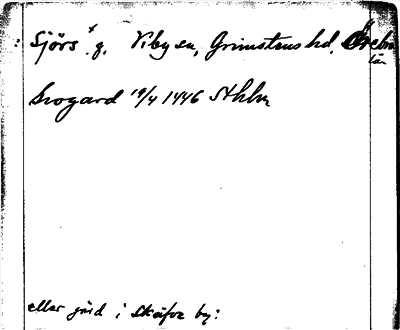 : Sjörs x g. Viby sn, Grimstens hd, Örebro
län
Srogard 19/4 1446 Sthlm
eller gård i Skäfve by: